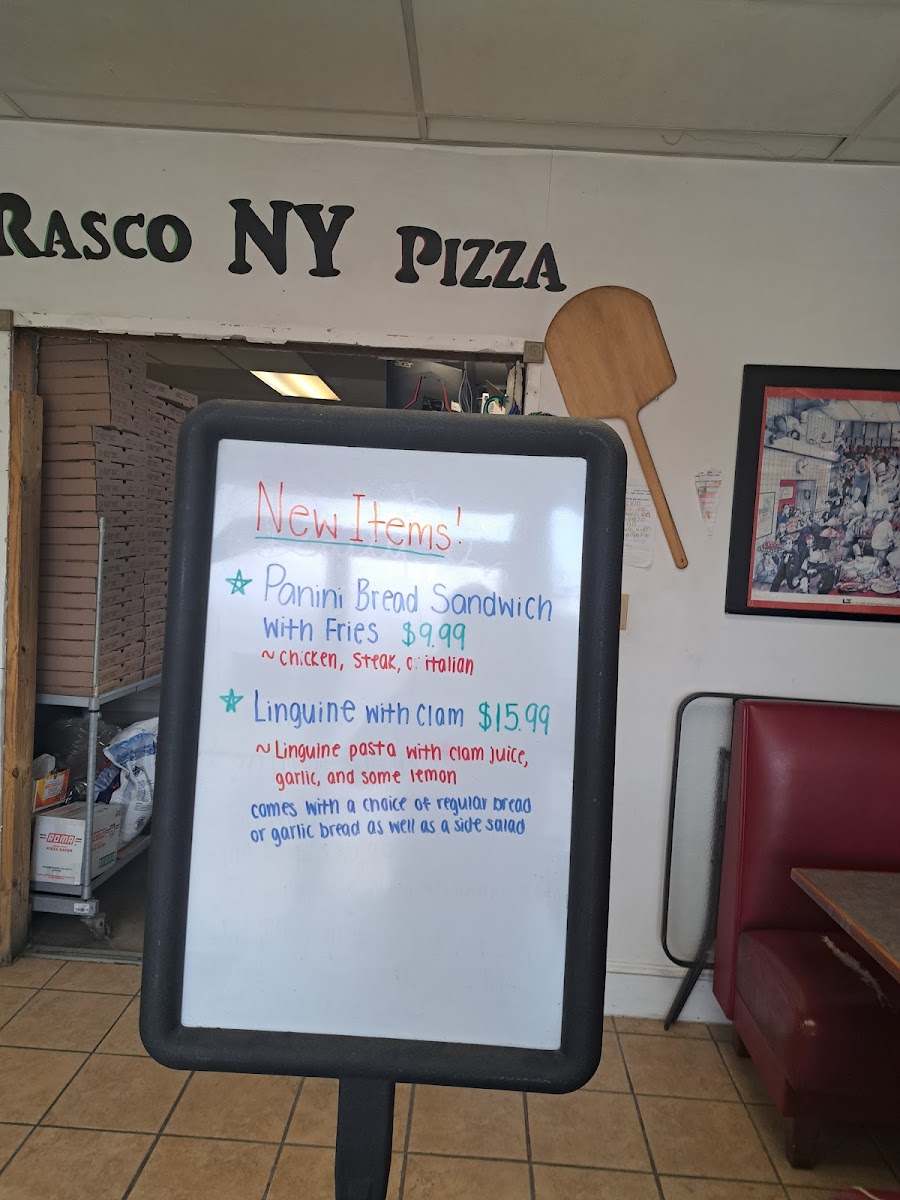 Rasco NY Pizza
acer
New Items!
Panini Bread Sandwich
with Fries $9.99
~ chicken, steak, or italian
Linguine with clam $15.99
~ Linguine pasta with clam juice,
garlic, and some lemon
comes with a choice of regular bread
or garlic bread as well as a side salad
ROMA